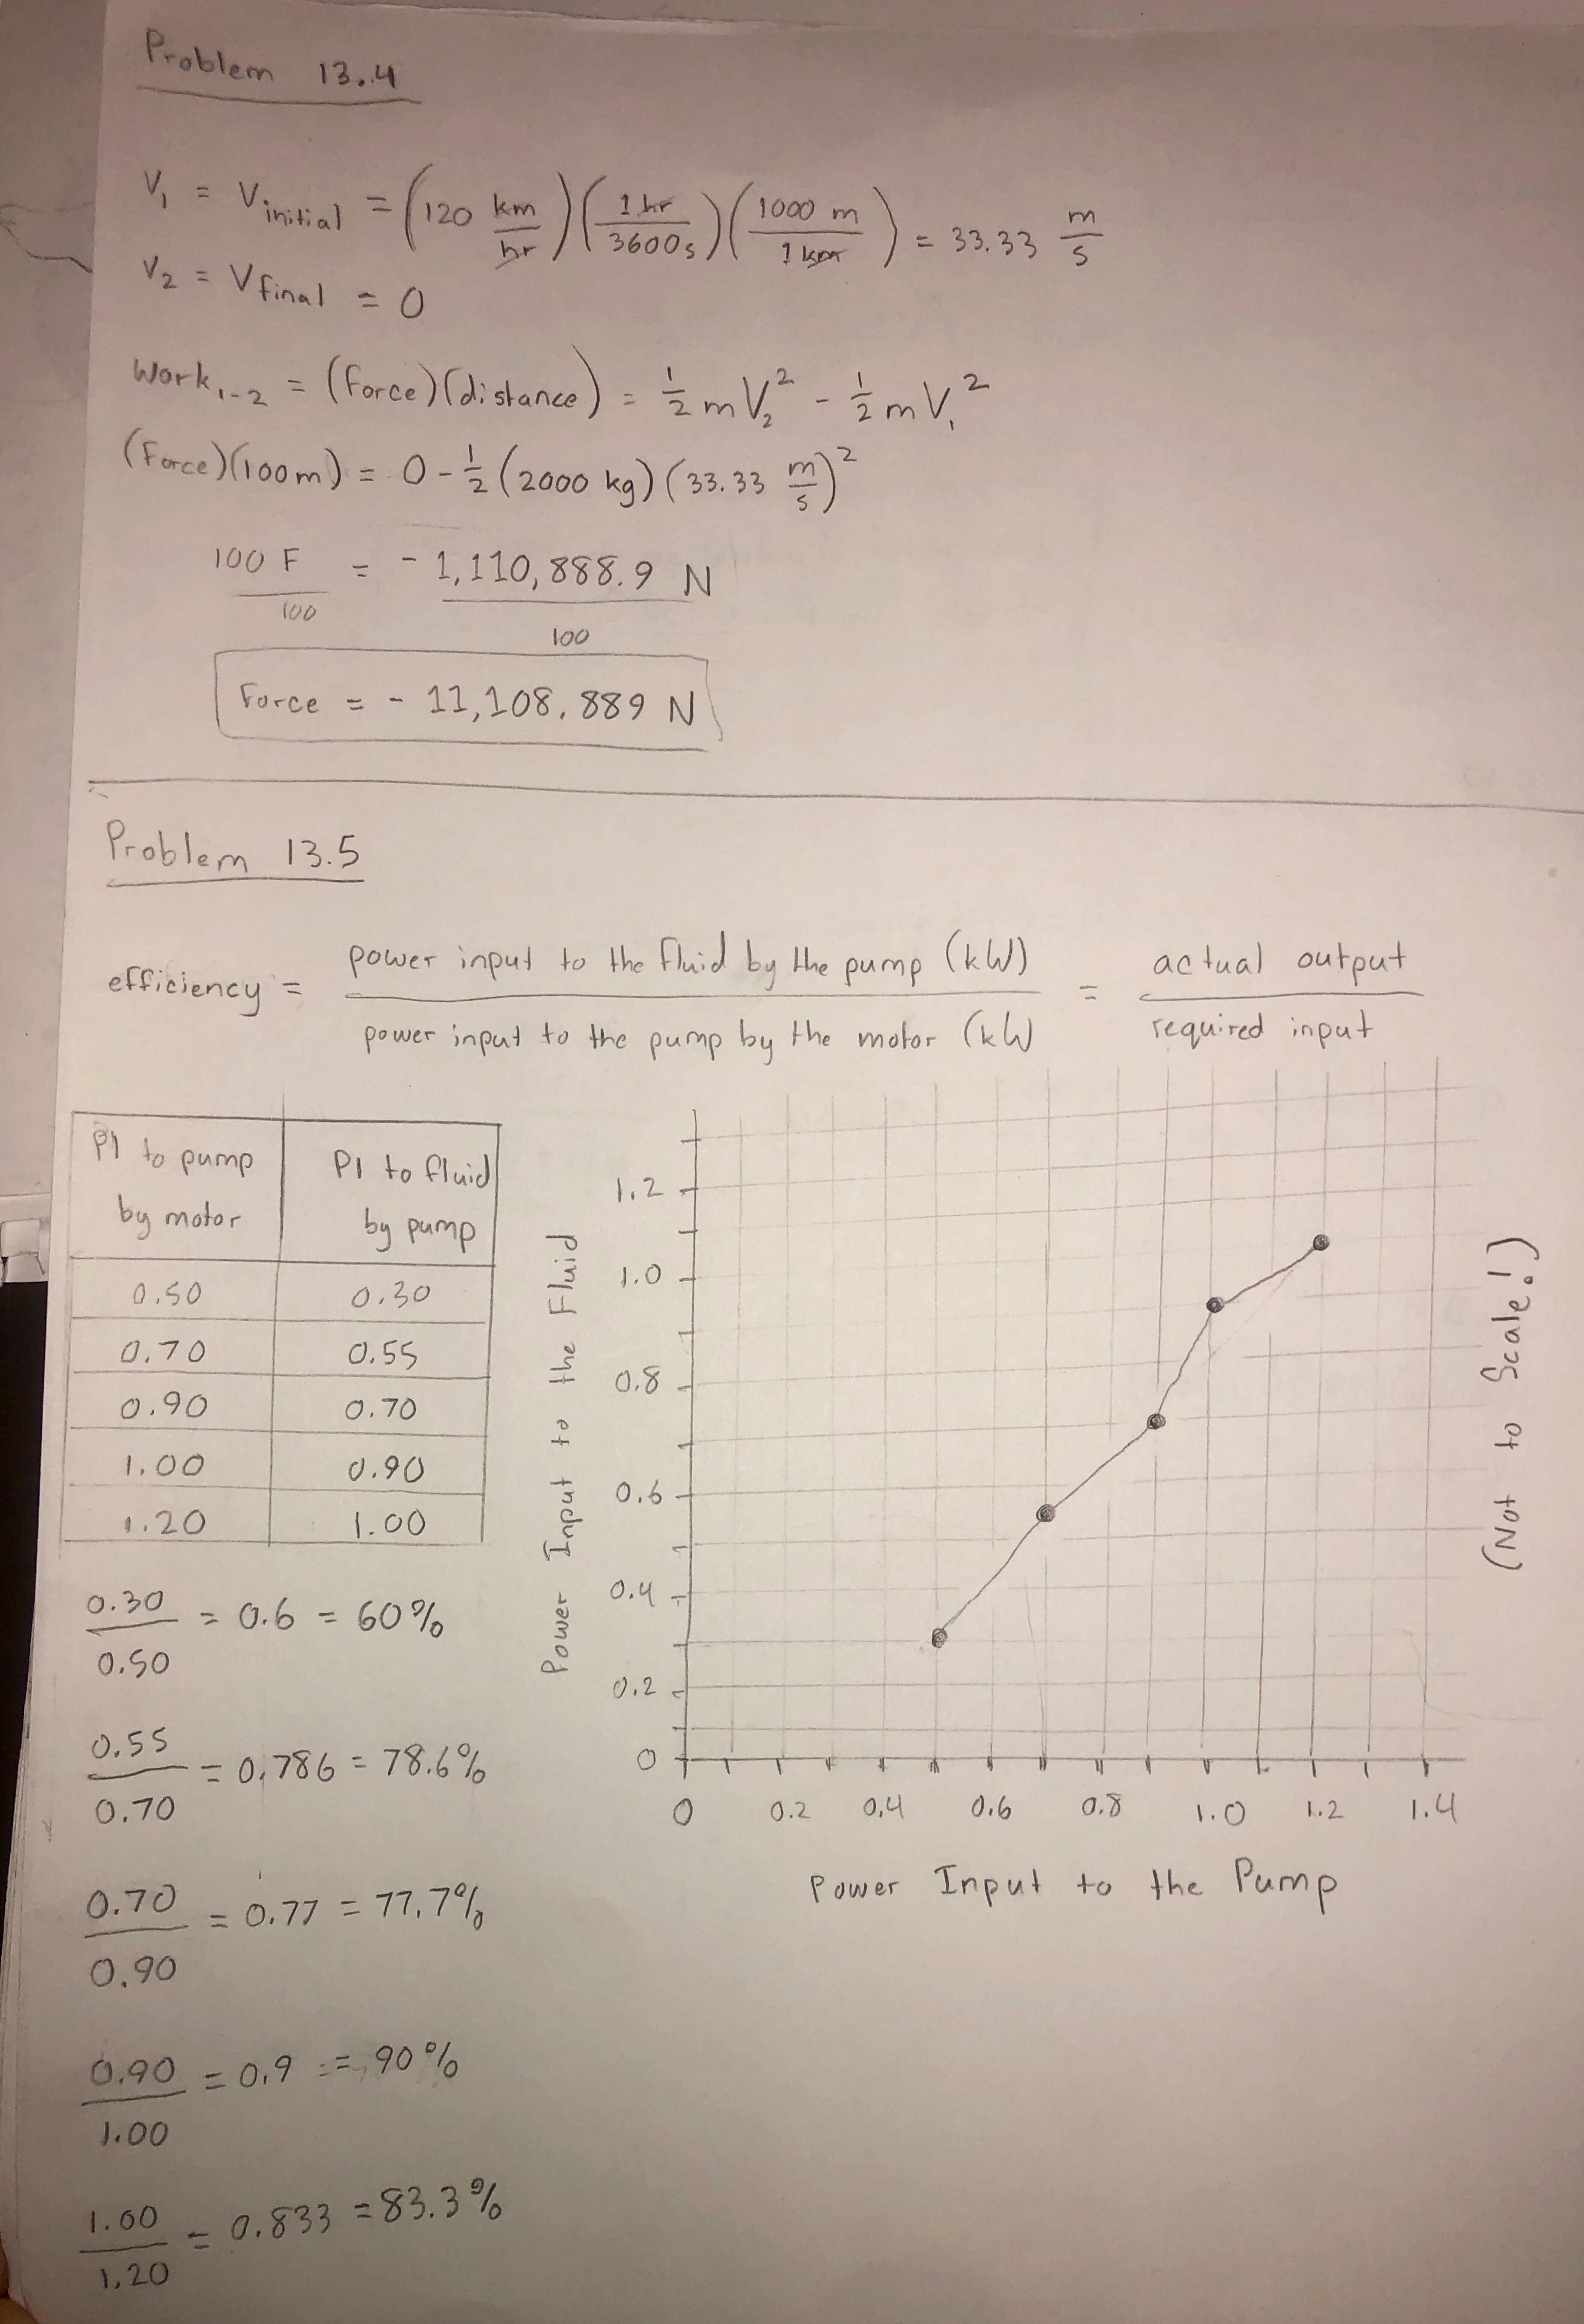 Problem 13.4
V₁ = V initial = (120 km/hr)(1 hr/3600s)(1000 m/1 km) = 33.33 m/s
V₂ = V final = 0
Work₁₋₂ = (force)(distance) = 1/2 m V₂² - 1/2 m V₁²
(Force)(100m) = 0 - 1/2 (2000 kg)(33.33 m/s)²
100 F / 100 = - 1,110,888.9 N / 100
Force = - 11,108.889 N
Problem 13.5
efficiency = power input to the fluid by the pump (kW) / power input to the pump by the motor (kW = actual output / required input
PI to pump by motor | PI to fluid by pump
0.50 | 0.30
0.70 | 0.55
0.90 | 0.70
1.00 | 0.90
1.20 | 1.00
0.30/0.50 = 0.6 = 60%
0.55/0.70 = 0.786 = 78.6%
0.70/0.90 = 0.77 = 77.7%
0.90/1.00 = 0.9 = 90%
1.00/1.20 = 0.833 = 83.3%
Power Input to the Fluid
1.2
1.0
0.8
0.6
0.4
0.2
0
0 0.2 0.4 0.6 0.8 1.0 1.2 1.4
Power Input to the Pump
(Not to Scale!)